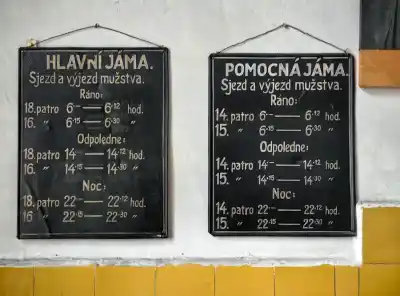 HLAVNÍ JÁMA.
Sjezd a výjezd mužstva.
Ráno:
18. patro 6·— — 6·12 hod.
16. " 6·15 — 6·30 "
Odpoledne:
18. patro 14·— — 14·12 hod.
16. " 14·15 — 14·30 "
Noc:
18. patro 22·— — 22·12 hod.
16 " 22·15 — 22·30 "
POMOCNÁ JÁMA.
Sjezd a výjezd mužstva.
Ráno:
14. patro 6·— — 6·12 hod.
15. " 6·15 — 6·30 "
Odpoledne:
14. patro 14·— — 14·12 hod.
15. " 14·15 — 14·30 "
Noc:
14. patro 22·— — 22·12 hod.
15. " 22·15 — 22·30 "